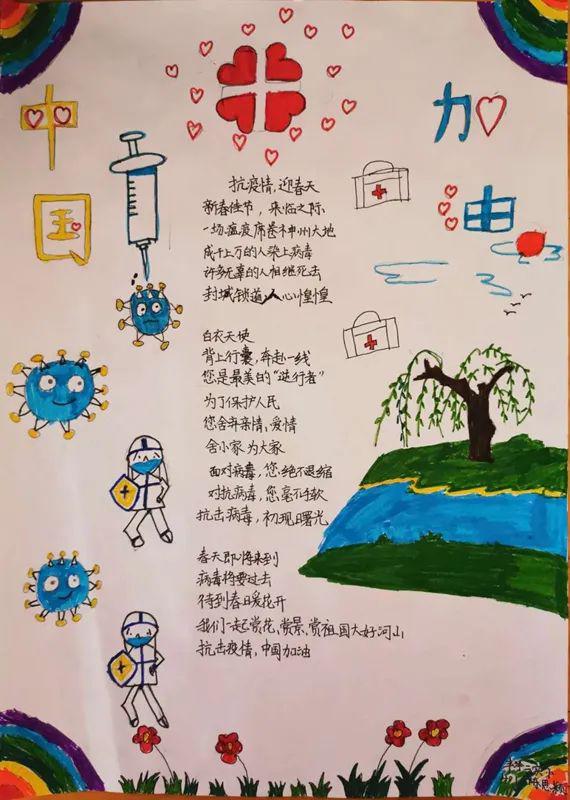 中国
加油
抗疫情，迎春天
新春佳节，来临之际
一场瘟疫席卷神州大地
成千上万的人染上病毒
许多无辜的人相继死去
封城锁道人心惶惶
白衣天使
背上行囊，奔赴一线
您是最美的“逆行者”
为了保护人民
您舍弃亲情、爱情
舍小家为大家
面对病毒，您绝不退缩
对抗病毒，您毫不手软
抗击病毒，初现曙光
春天即将来到
病毒将要过去
待到春日暖花开
我们一起赏花、赏景、赏祖国大好河山
抗击疫情，中国加油